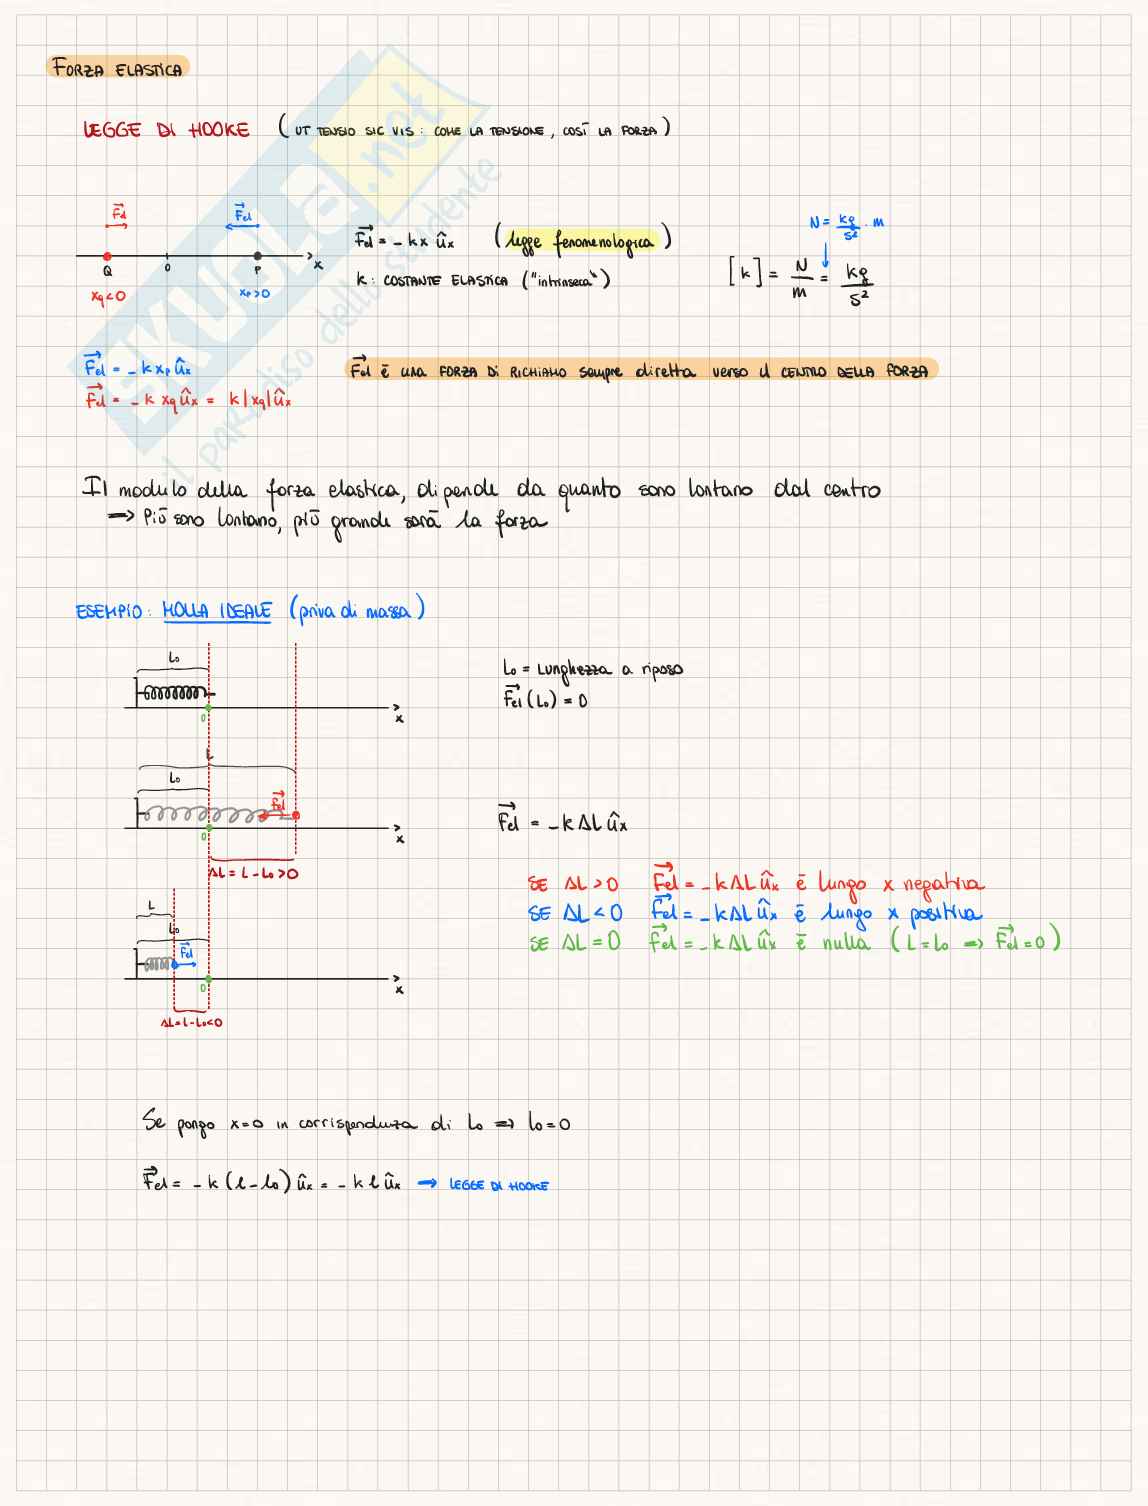 FORZA ELASTICA
LEGGE DI HOOKE (UT TENSIO SIC VIS: COME LA TENSIONE, COSÌ LA FORZA)
F⃗el
F⃗el
Q
0
P
x
xq<0
xp>0
F⃗el = -kx ûx (legge fenomenologica)
k: COSTANTE ELASTICA ("intrinseca")
N = kg/s² · m
[k] = N/m = kg/s²
F⃗el = -k xp ûx
F⃗el = -k xq ûx = k|xq|ûx
F⃗el è una FORZA DI RICHIAMO sempre diretta verso il CENTRO DELLA FORZA
Il modulo della forza elastica, dipende da quanto sono lontano dal centro
⇒ Più sono lontano, più grande sarà la forza
ESEMPIO: MOLLA IDEALE (priva di massa)
L₀
0
x
L₀ = Lunghezza a riposo
F⃗el (L₀) = 0
L
L₀
F⃗el
0
x
ΔL = L - L₀ > 0
F⃗el = -kΔL ûx
SE ΔL > 0 F⃗el = -kΔL ûx è lungo x negativa
SE ΔL < 0 F⃗el = -kΔL ûx è lungo x positiva
SE ΔL = 0 F⃗el = -kΔL ûx è nulla (L = L₀ ⇒ F⃗el = 0)
L
L₀
F⃗el
0
x
ΔL = L - L₀ < 0
Se pongo x=0 in corrispondenza di L₀ ⇒ l₀=0
F⃗el = -k (l - l₀) ûx = -k l ûx → LEGGE DI HOOKE
SKUOLA.net
il paradiso dello studente